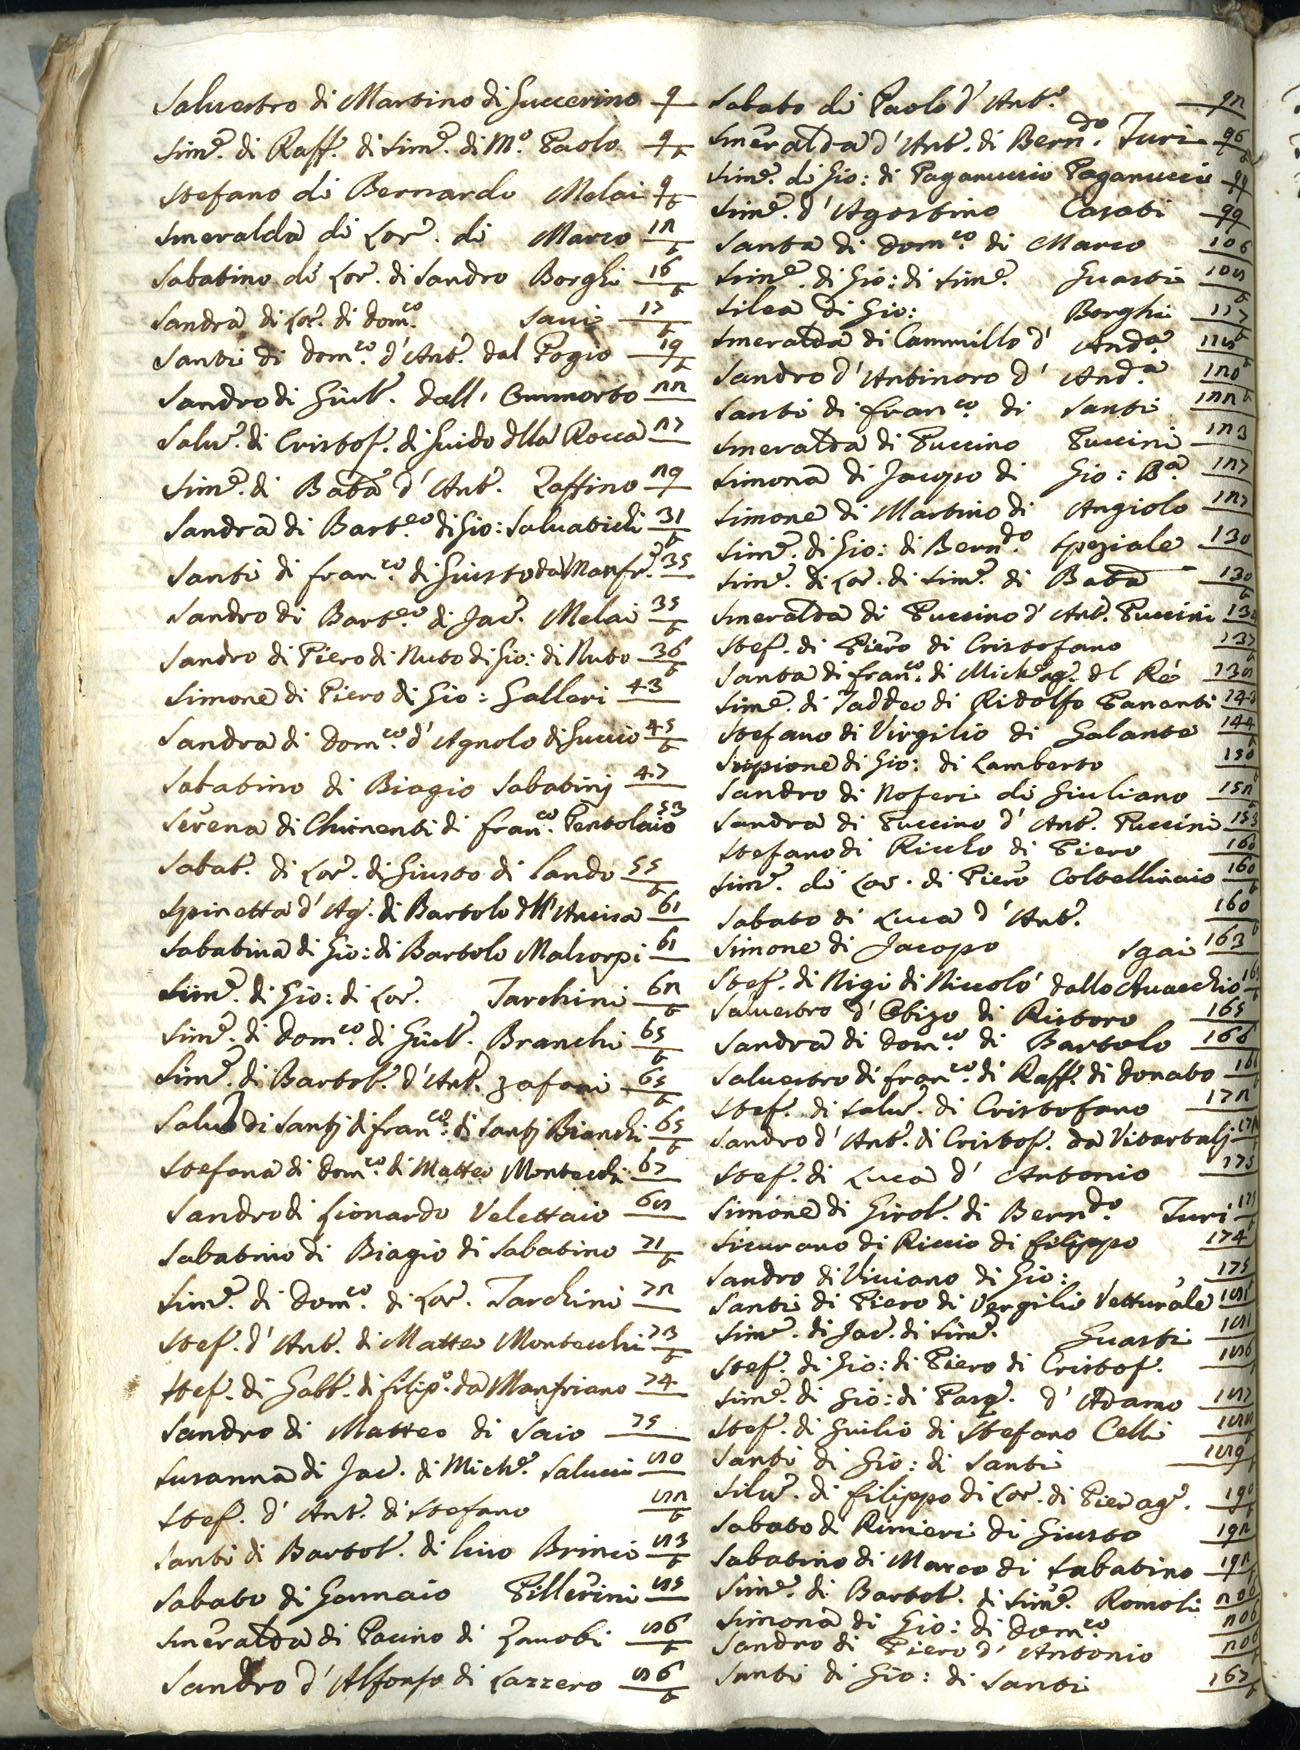 Salvestro di Martino di Guccerino 9
Sim.e di Raff. di Sim.e di M.o Paolo 9 t
Stefano di Bernardo Melai 9 t
Smeralda di Lor. di Marco 12 t
Sabatino di Lor. di Sandro Borghi 16 t
Sandra di Lor. di Dom.co Savi 17 t
Santi di Dom.co d'Ant.o dal Pogio 19 t
Sandro di Giul.o dall' Ommorto 22
Salv.o di Cristof.o di Guido dlla Rocca 27
Sim.e di Bat.a d'Ant.o Zaffino 29
Sandra di Bart.eo di Gio: Salvatichi 31 t
Santi di Fran.co di Giusto da Manfr.o 35
Sandro di Bart.eo di Jac.o Melai 35 t
Sandro di Piero di Nuto di Gio: di Nuto 36 t
Simone di Piero di Gio: Galleri 43
Sandra di Dom.co d'Agnolo di Guccio 45 t
Sabatino di Biagio Sabatinj 47
Serena di Chimenti di Fran.co Pentolaio 53
Sabat.o di Lor. di Giusto di Lando 55 t
Spinetta d'Ag.o di Bartolo 61
Sabatina di Gio: di Bartolo 61
Sim.e di Gio: di Lor. Tarchini 62 t
Sim.e di Dom.co di Giul.o Branchi 65 t
Sim.e di Bartol.o d'Ant.o Zafani 65 t
Salv.o di Santj di Fran.co di Santj Bianchi 65 t
Stefana di Dom.co di Matteo Montecchi 67
Sandro di Lionardo Velettaio 68
Sabatino di Biagio di Sabatino 71 t
Sim.e di Dom.co di Lor. Tarchini 72
Stef.o d'Ant.o di Matteo Montecchi 73 t
Stef.o di Gabb.o di Filip.o da Manfriano 74
Sandro di Matteo di Saio 75
Susanna di Jac.o di Mich.e Salucci 80
Stef.o d'Ant.o di Stefano 82 t
Santi di Bartol.o di Cino Brinci 83 t
Sabato di Gennaio Pillerini 85
Smeralda di Pacino di Zanobi 86 t
Sandro d'Alfonso di Lazzero 86 t
Sabato di Paolo d'Ant.o 92
Smeralda d'Ant.o di Bern.do Turi 96 t
Sim.e di Gio: di Paganuccio Paganucci 99
Sim.e d'Agostino Casati 99
Santa di Dom.co di Marco 106
Sim.e di Gio: di Sim.e Guasti 108 t
Silea di Gio: Borghi 117 t
Smeralda di Cammillo d' And.a 118 t
Sandro d'Antinoro d' And.a 120 t
Santi di Fran.co di Santi 122
Smeralda di Puccino Puccini 123
Simona di Jacopo di Gio: B.a 127
Simone di Martino di Angiolo 127
Sim.e di Gio: di Bern.do Speziale 130
Sim.e di Lor. di Sim.e di Bat.a 130 t
Smeralda di Puccino d'Ant.o Puccini
Stef.o di Piero di Cristofano 137 t
Santa di Fran.co di Mich.ag.o del Re 138
Sim.e di Taddeo di Ridolfo Pananti 143
Stefano di Virgilio di Galante 144 t
Scipione di Gio: di Lamberto 150 t
Sandro di Noferi di Giuliano 152 t
Sandra di Puccino d'Ant.o Puccini 153
Stefano di Riccho di Piero 160
Sim.e di Lor. di Piero Coltellinaio 160 t
Sabato di Luca d'Ant.o 160 t
Simone di Jacopo Sgai 163
Stef.o di Nigi di Niccolò
Salvestro d'Obizo di Ristoro 165
Sandra di Dom.co di Bartolo 166
Salvestro di Fran.co di Raff. di Donato
Stef.o di Salv.o di Cristofano 172
Sandro d'Ant.o di Cristof.o da
Stef.o di Luca d' Antonio 173
Simone di Girol.o di Bern.do Turi
Sicurano di Riccio di Filippo 174
Sandro di Viviano di Gio: 175
Santi di Piero di Vergilio Vetturale 181
Sim.e di Jac.o di Sim.e Guasti 181
Stef.o di Gio: di Piero di Cristof.o 186
Sim.e di Gio: di Pasq.o d'Adamo 187
Stef.o di Guilio di Stefano Celli 188
Santi di Gio: di Santi 189 t
Silv.o di Filippo di Lor. di Pier ag.o 190 t
Sabato di Rinieri di Giusto 192
Sabatino di Marco di Sabatino 192 t
Sim.e di Bartol.o di Sim.e Romoli 206
Simona di Gio: di Dom.co 206
Sandro di Piero d'Antonio 206 t
Santi di Gio: di Santi 167 t